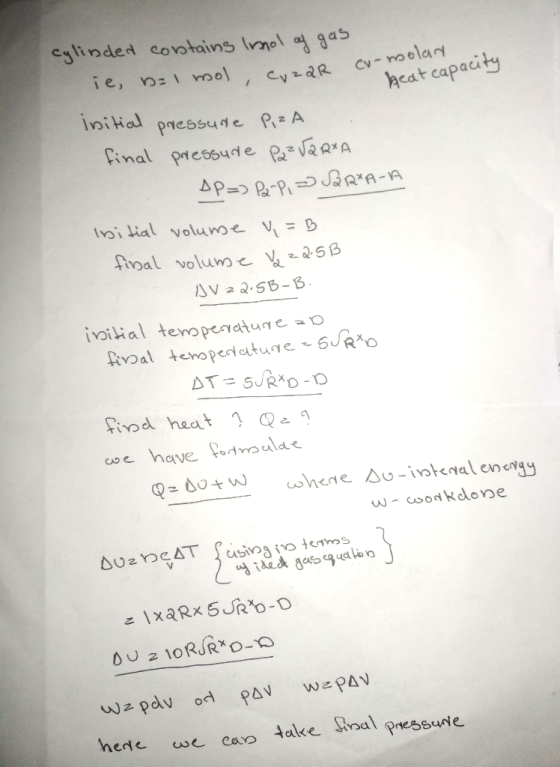 cylinder contains 1mol of gas
ie, n=1 mol, Cv=2R Cv-molar heat capacity
initial pressure P₁=A
final pressure P₂=√2R*A
ΔP=>P₂-P₁=>√2R*A-A
Initial volume V₁ = B
final volume V₂=2.5B
ΔV=2.5B-B.
initial temperature =D
final temperature = 5√R*D
ΔT = 5√R*D-D
find heat ? Q=?
we have formulae
Q=ΔU+W where ΔU-internal energy
W-workdone
ΔU=ncᵥΔT {using in terms of ideal gas equation}
= 1x2Rx5√R*D-D
ΔU = 10R√R*D-D
W=pdv or pΔV W=PΔV
here we can take final pressure